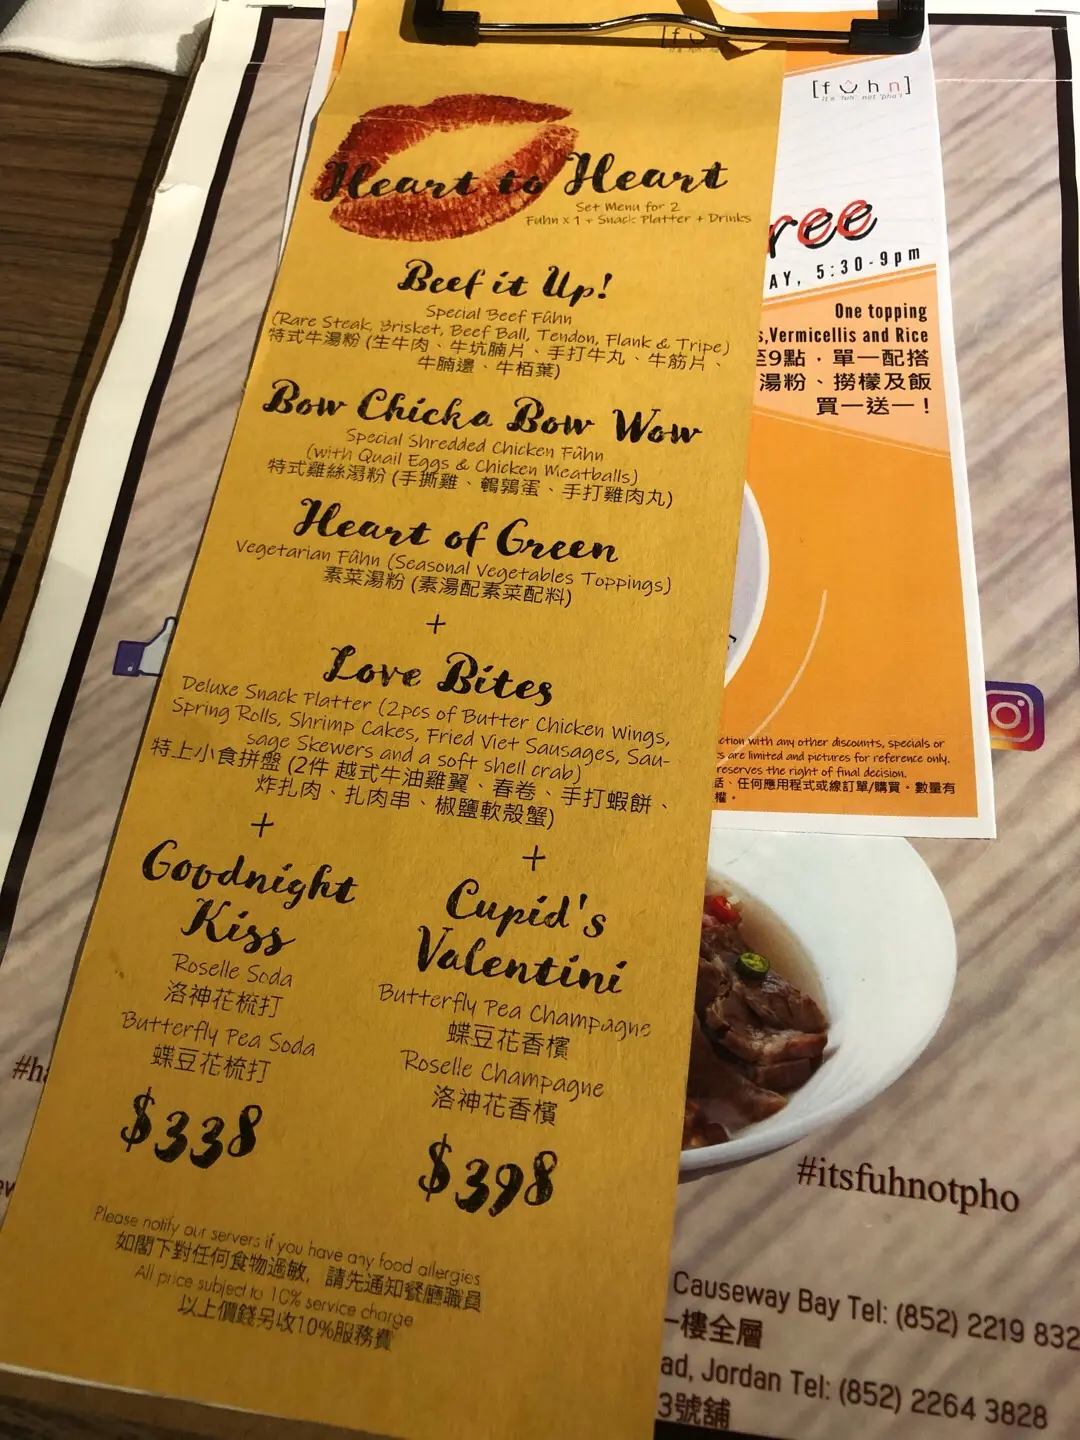 Heart to Heart
Set Menu for 2
Fuhn x 1 + Snack Platter + Drinks
Beef it Up!
Special Beef Fûhn
(Rare Steak, Brisket, Beef Ball, Tendon, Flank & Tripe)
特式牛湯粉 (生牛肉、牛坑腩片、手打牛丸、牛筋片、
牛腩邊、牛栢葉)
Bow Chicka Bow Wow
Special Shredded Chicken Fûhn
(with Quail Eggs & Chicken Meatballs)
特式雞絲湯粉 (手撕雞、鵪鶉蛋、手打雞肉丸)
Heart of Green
Vegetarian Fûhn (Seasonal Vegetables Toppings)
素菜湯粉 (素湯配素菜配料)
+
Love Bites
Deluxe Snack Platter (2pcs of Butter Chicken Wings,
Spring Rolls, Shrimp Cakes, Fried Viet Sausages, Sau-
sage Skewers and a soft shell crab)
特上小食拼盤 (2件 越式牛油雞翼、春卷、手打蝦餅、
炸扎肉、扎肉串、椒鹽軟殼蟹)
+
Goodnight
Kiss
Roselle Soda
洛神花梳打
Butterfly Pea Soda
蝶豆花梳打
$338
+
Cupid's
Valentini
Butterfly Pea Champagne
蝶豆花香檳
Roselle Champagne
洛神花香檳
$398
Please notify our servers if you have any food allergies
如閣下對任何食物過敏，請先通知餐廳職員
All price subject to 10% service charge
以上價錢另收10%服務費
[fûhn]
it's 'fun' not 'pho'!
ree
AY, 5:30-9pm
One topping
s,Vermicellis and Rice
至9點．單一配搭
湯粉、撈檬及飯
買一送一！
ction with any other discounts, specials or
s are limited and pictures for reference only.
reserves the right of final decision.
話、任何應用程式或線訂單/購買。數量有
權。
#itsfuhnotpho
Causeway Bay Tel: (852) 2219 832
一樓全層
ad, Jordan Tel: (852) 2264 3828
3號舖